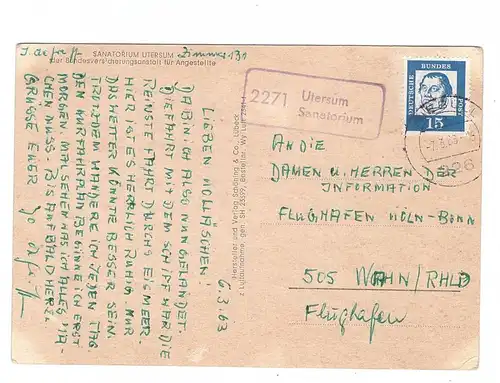 J. de
SANATORIUM UTERSUM Zimmer 131
der Bundesversicherungsanstalt für Angestellte
6.3.63
LIEBEN
DA BIN ICH ALSO NUN GELANDET.
DIE FAHRT MIT DEM SCHIFF WAR DIE
REINSTE FAHRT DURCHS EISMEER.
HIER IST ES HERRLICH RUHIG NUR
DAS WETTER KÖNNTE BESSER SEIN.
TROTZDEM WANDERE ICH JEDEN TAG
DEN KURFAHRPLAN BEGINNE ICH ERST
MORGEN. MAL SEHEN WAS ICH ALLES MA-
CHEN MUSS. BIS AUF BALD HERZL.
GRÜSSE EUER
Hersteller und Verlag Schöning & Co., Lübeck
z Luftaufnahme, gen. SH
2271 Utersum
Sanatorium
DEUTSCHE BUNDES POST
15
-7.3.63
AN DIE
DAMEN U. HERREN DER
INFORMATION
FLUGHAFEN KÖLN-BONN
505 WAHN/RHLD
Flughafen